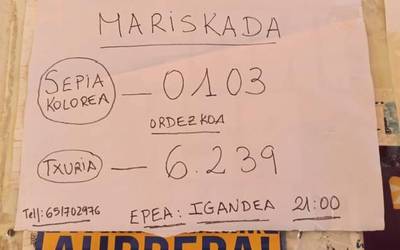 MARISKADA
SEPIA KOLOREA — 0103
ORDEZKOA
TXURIA — 6.239
Telf: 651702976 EPEA: IGANDEA 21:00
AURRERA!